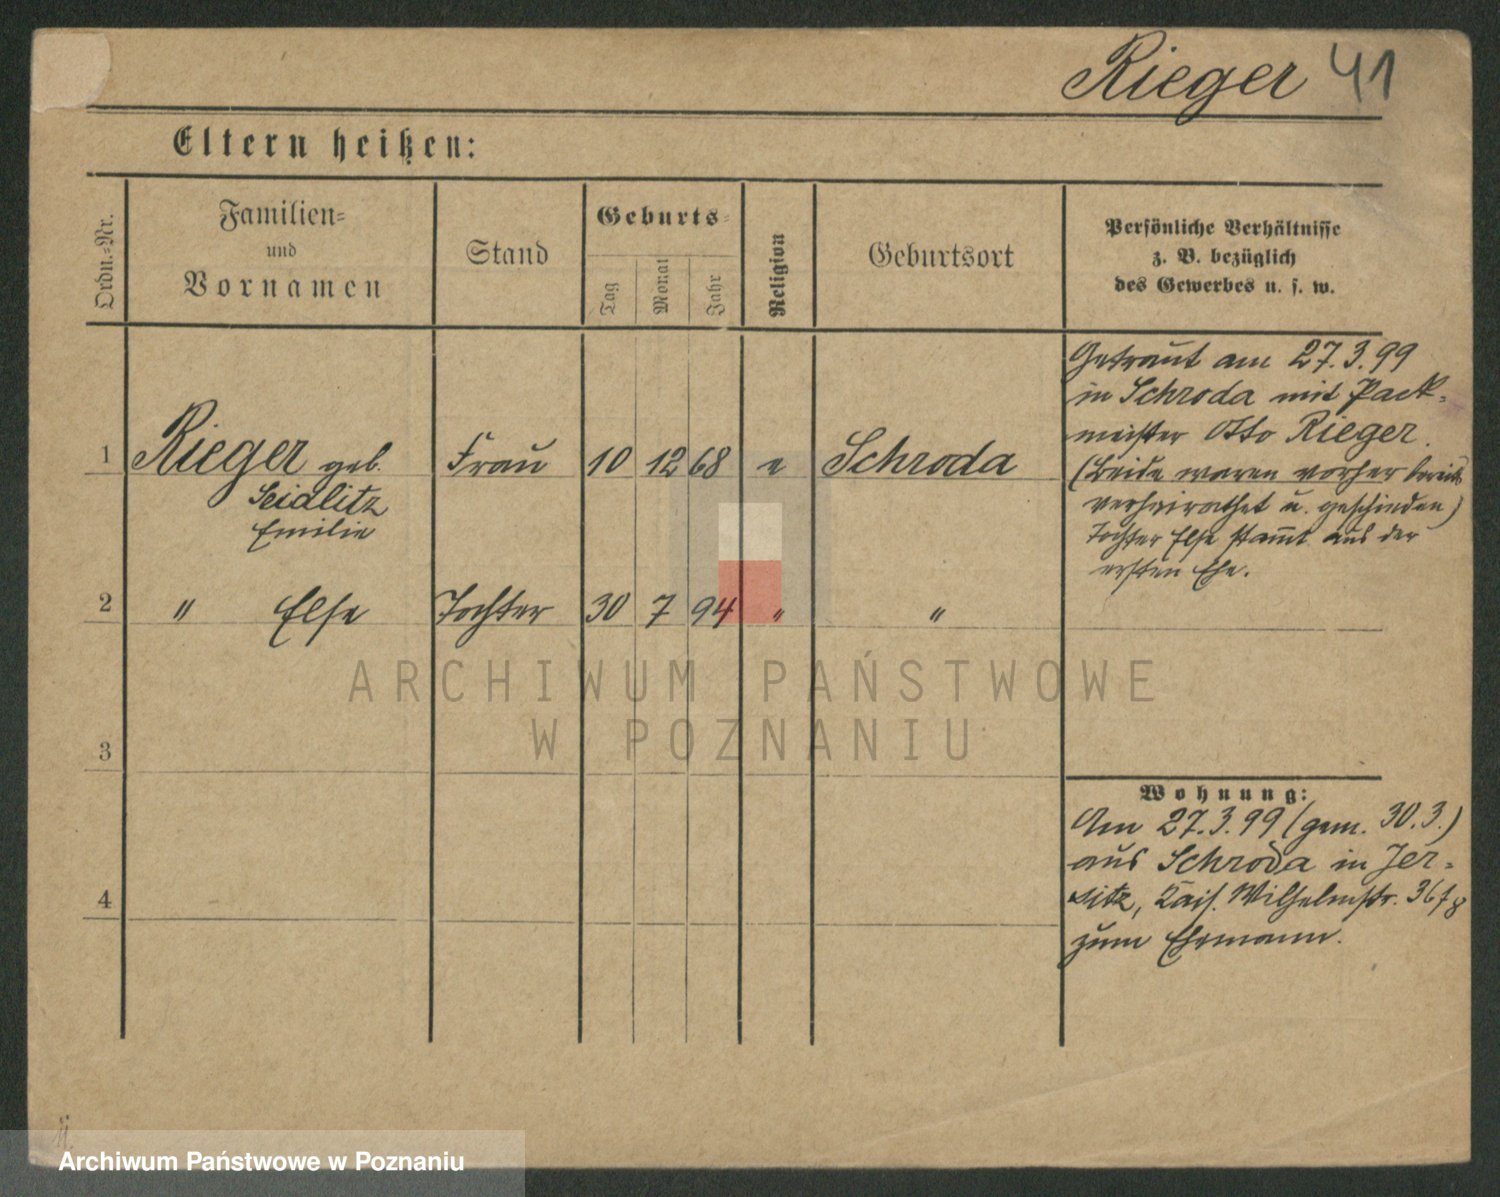 Rieger 41
Eltern heißen:
Ordn.-Nr.
Familien-
und
Vornamen
Stand
Geburts-
Tag
Monat
Jahr
Religion
Geburtsort
Persönliche Verhältnisse
z. B. bezüglich
des Gewerbes u. s. w.
Getraut am 27.3.99
in Schroda mit Pack-
meister Otto Rieger.
(Beide waren vorher bereits
verheirathet u. geschieden)
Tochter Else stammt aus der
ersten Ehe.
1 Rieger geb. Frau 10 12 68 e Schroda
Seidlitz
Emilie
2 " Else Tochter 30 7 94 " "
ARCHIWUM PAŃSTWOWE
W POZNANIU
3
4
Wohnung:
Am 27.3.99 (gem. 30.3.)
aus Schroda in Jer-
sitz, Kais. Wilhelmstr. 36/78
zum Ehemann.
Archiwum Państwowe w Poznaniu